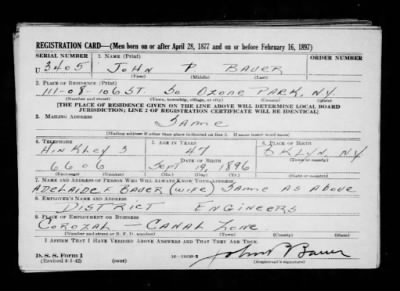 REGISTRATION CARD—(Men born on or after April 28, 1877 and on or before February 16, 1897)
SERIAL NUMBER 1. NAME (Print) ORDER NUMBER
U 3405 JOHN P BAUER
(First) (Middle) (Last)
2. PLACE OF RESIDENCE (Print)
111-08-106 ST. So OZONE PARK, N.Y.
(Number and street) (Town, township, village, or city) (County) (State)
[THE PLACE OF RESIDENCE GIVEN ON THE LINE ABOVE WILL DETERMINE LOCAL BOARD
JURISDICTION; LINE 2 OF REGISTRATION CERTIFICATE WILL BE IDENTICAL]
3. MAILING ADDRESS
SAME
[Mailing address if other than place indicated on line 2. If same insert word same]
4. TELEPHONE 5. AGE IN YEARS 6. PLACE OF BIRTH
HINKLEY 3 47 BKLYN, NY
DATE OF BIRTH
6606 SEPT 19, 1896
7. NAME AND ADDRESS OF PERSON WHO WILL ALWAYS KNOW YOUR ADDRESS
ADELAIDE F BAUER (WIFE) SAME AS ABOVE
8. EMPLOYER'S NAME AND ADDRESS
DISTRICT ENGINEERS
9. PLACE OF EMPLOYMENT OR BUSINESS
COROZAL — CANAL ZONE
(Number and street or R. F. D. number) (Town) (County) (State)
I AFFIRM THAT I HAVE VERIFIED ABOVE ANSWERS AND THAT THEY ARE TRUE.
D. S. S. Form 1
(Revised 4-1-42) John P Bauer
(Registrant's signature)